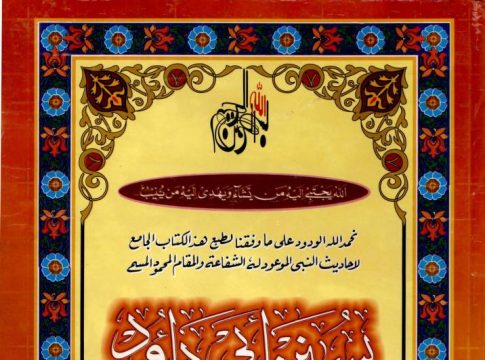 بسم الله الرحمن الرحيم
الله يجتبي إليه من يشاء ويهدي إليه من ينيب
نحمد الله الودود على ما وفقنا لطبع هذا الكتاب الجامع
لاحاديث النبى الموعود له الشفاعة والمقام المحمود المسمى
سنن أبي داؤد